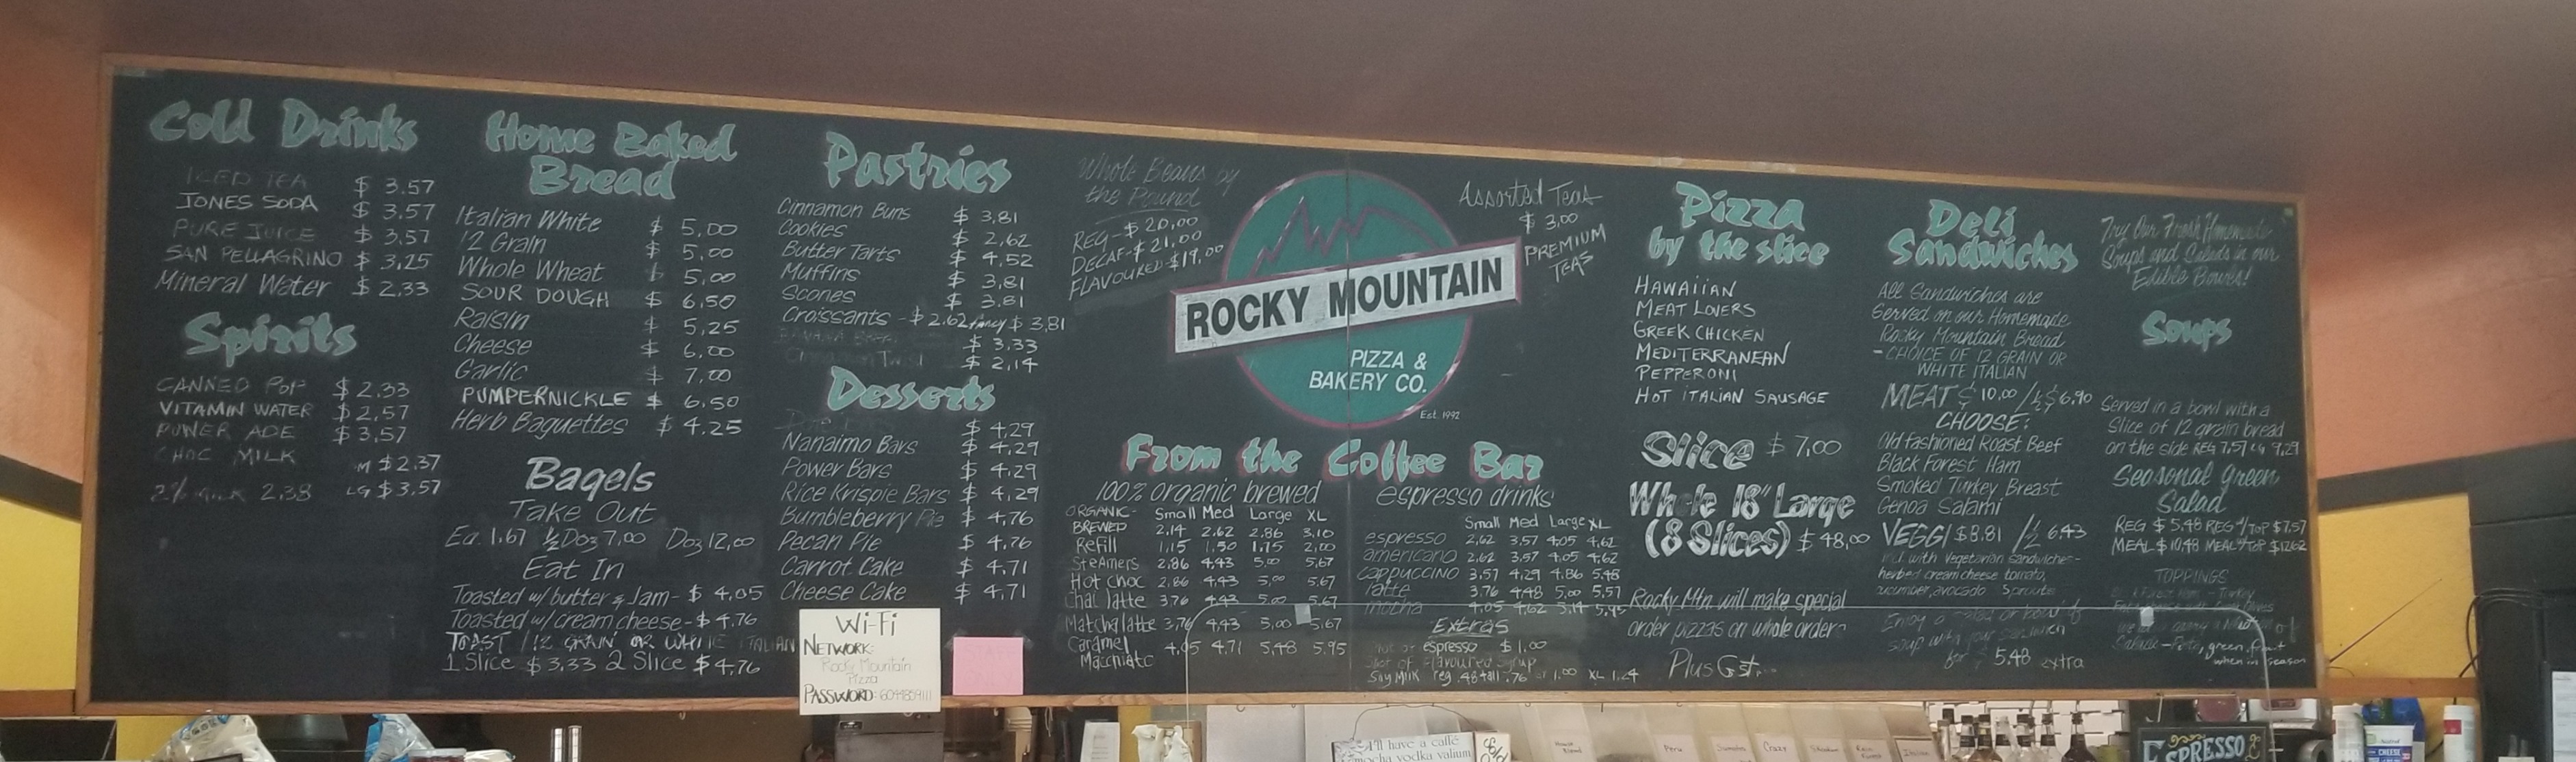 Cold Drinks
ICED TEA $ 3.57
JONES SODA $ 3.57
PURE JUICE $ 3.57
SAN PELLAGRINO $ 3.25
Mineral Water $ 2.33
Spirits
CANNED POP $ 2.33
VITAMIN WATER $ 2.57
POWER ADE $ 3.57
CHOC MILK M $ 2.37
2% MILK 2.38 LG $ 3.57
Home Baked
Bread
Italian White $ 5.00
12 Grain $ 5.00
Whole Wheat $ 5.00
SOUR DOUGH $ 6.50
Raisin $ 5.25
Cheese $ 6.00
Garlic $ 7.00
PUMPERNICKLE $ 6.50
Herb Baguettes $ 4.25
Bagels
Take Out
Ea. 1.67 ½ Doz 7.00 Doz 12.00
Eat In
Toasted w/ butter & Jam - $ 4.05
Toasted w/ cream cheese - $ 4.76
TOAST /12 GRAIN OR WHITE ITALIAN
1 Slice $ 3.33 2 Slice $ 4.76
Pastries
Cinnamon Buns $ 3.81
Cookies $ 2.62
Butter Tarts $ 4.52
Muffins $ 3.81
Scones $ 3.81
Croissants - $ 2.62 fancy $ 3.81
$ 3.33
Cinnamon Twist $ 2.14
Desserts
$ 4.29
Nanaimo Bars $ 4.29
Power Bars $ 4.29
Rice Krispie Bars $ 4.29
Bumbleberry Pie $ 4.76
Pecan Pie $ 4.76
Carrot Cake $ 4.71
Cheese Cake $ 4.71
Wi-Fi
NETWORK:
Rocky Mountain
Pizza
PASSWORD: 6044859111
Whole Beans by
the Pound
REG - $ 20.00
DECAF - $ 21.00
FLAVOURED - $ 19.00
ROCKY MOUNTAIN
PIZZA &
BAKERY CO.
Est. 1992
Assorted Teas
$ 3.00
PREMIUM
TEAS
From the Coffee Bar
100% organic brewed
Small Med Large XL
ORGANIC-
BREWED 2.14 2.62 2.86 3.10
Refill 1.15 1.50 1.75 2.00
Steamers 2.86 4.43 5.00 5.67
Hot choc 2.86 4.43 5.00 5.67
Chai latte 3.76 4.43 5.00 5.67
Matcha latte 3.76 4.43 5.00 5.67
Caramel 4.05 4.71 5.48 5.95
Macchiato
espresso drinks
Small Med Large XL
espresso 2.62 3.57 4.05 4.62
americano 2.62 3.57 4.05 4.62
cappuccino 3.57 4.29 4.86 5.48
latte 3.76 4.48 5.00 5.57
mocha 4.05 4.62 5.14 5.95
Extras
shot of espresso $ 1.00
shot of flavoured syrup
Soy Milk reg .48 tall .76 1.00 XL 1.24
Pizza
by the slice
HAWAIIAN
MEAT LOVERS
GREEK CHICKEN
MEDITERRANEAN
PEPPERONI
HOT ITALIAN SAUSAGE
Slice $ 7.00
Whole 18" Large
(8 Slices) $ 48.00
Rocky Mtn will make special
order pizzas on whole orders
Plus Gst.
Deli
Sandwiches
All Sandwiches are
Served on our Homemade
Rocky Mountain Bread
- CHOICE OF 12 GRAIN OR
WHITE ITALIAN
MEAT $ 10.00 / ½ $ 6.90
CHOOSE:
Old fashioned Roast Beef
Black Forest Ham
Smoked Turkey Breast
Genoa Salami
VEGGI $ 8.81 / ½ 6.43
with Vegetarian sandwiches-
herbed cream cheese tomato,
cucumber, avocado Sprouts
Enjoy a salad or bowl of
soup with your sandwich
for $ 5.48 extra
Try Our Fresh Homemade
Soups and Salads in our
Edible Bowls!
Soups
Served in a bowl with a
Slice of 12 grain bread
on the side REG 7.57 LG 9.29
Seasonal Green
Salad
REG $ 5.48 REG w/ TOP $ 7.57
MEAL $ 10.48 MEAL w/ TOP $ 12.62
TOPPINGS
green, fruit
when in season
I'll have a caffé
mocha vodka valium
Peru
Sumatra
Crazy
ESPRESSO
CHEESE